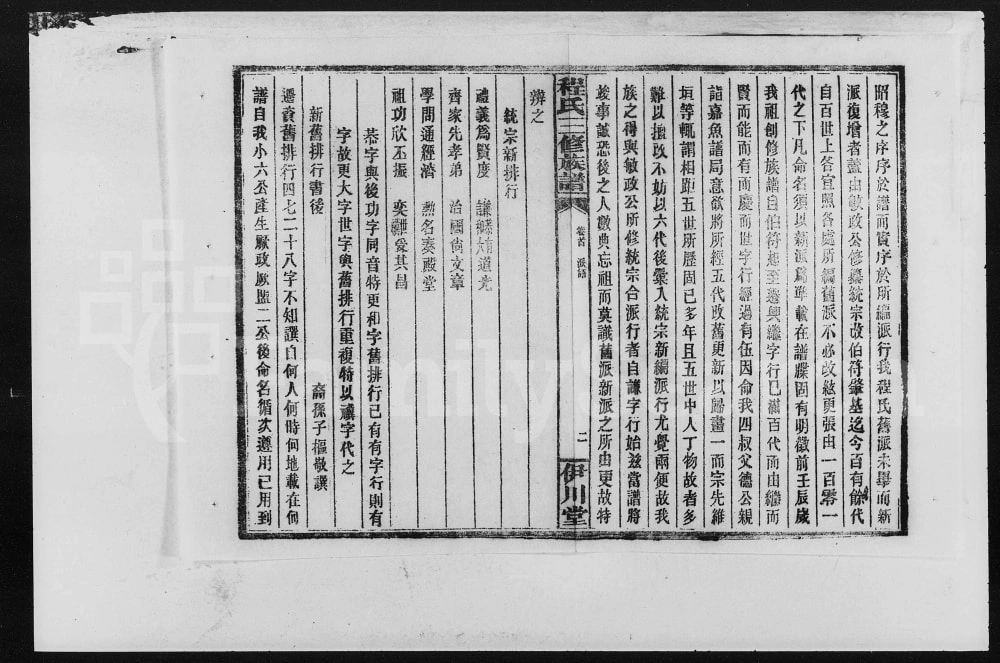 昭穆之序序於譜而實序於所編派行我程氏舊派未畢而新
派復增者蓋由敏政公修纂統宗改伯符肇基迄今百有餘代
自百世上各宜照各處所編舊派不必改絃更張由一百零一
代之下凡命名須以新派爲準載在譜牒固有明徵前壬辰歲
我祖創修族譜自伯符起至遷興繼字行已滿百代而由繼而
賢而能而有而慶而世字行經過有伍因命我四叔父德公親
詣嘉魚譜局意欲將所經五代改舊更新以歸畫一而宗先維
垣等輒謂相距五世所歷固已多年且五世中人丁物故者多
難以擅改不妨以六代後彙入統宗新編派行尤覺兩便故我
族之得與敏政公所修統宗合派行者自謙字行始茲當譜將
竣事誠恐後之人數典忘祖而莫識舊派新派之所由更故特
辨之
統宗新排行
禮義爲賢度 謙繼道光
齊家先孝弟 治國尚文章
學問通經濟 勲名奏殿堂
祖功欣丕振 奕襈爰其昌
恭字與後功字同音特更和字舊排行已有有字行則有
字故更大字世字與舊排行重複特以禩字代之
裔孫子樞敬譔
新舊排行書後
遷省舊排行四七二十八字不知譔自何人何時何地載在何
譜自我小六公產生厥政厥監二公後命名循次遵用已用到
程氏二修族譜
卷首 派語
二
伊川堂